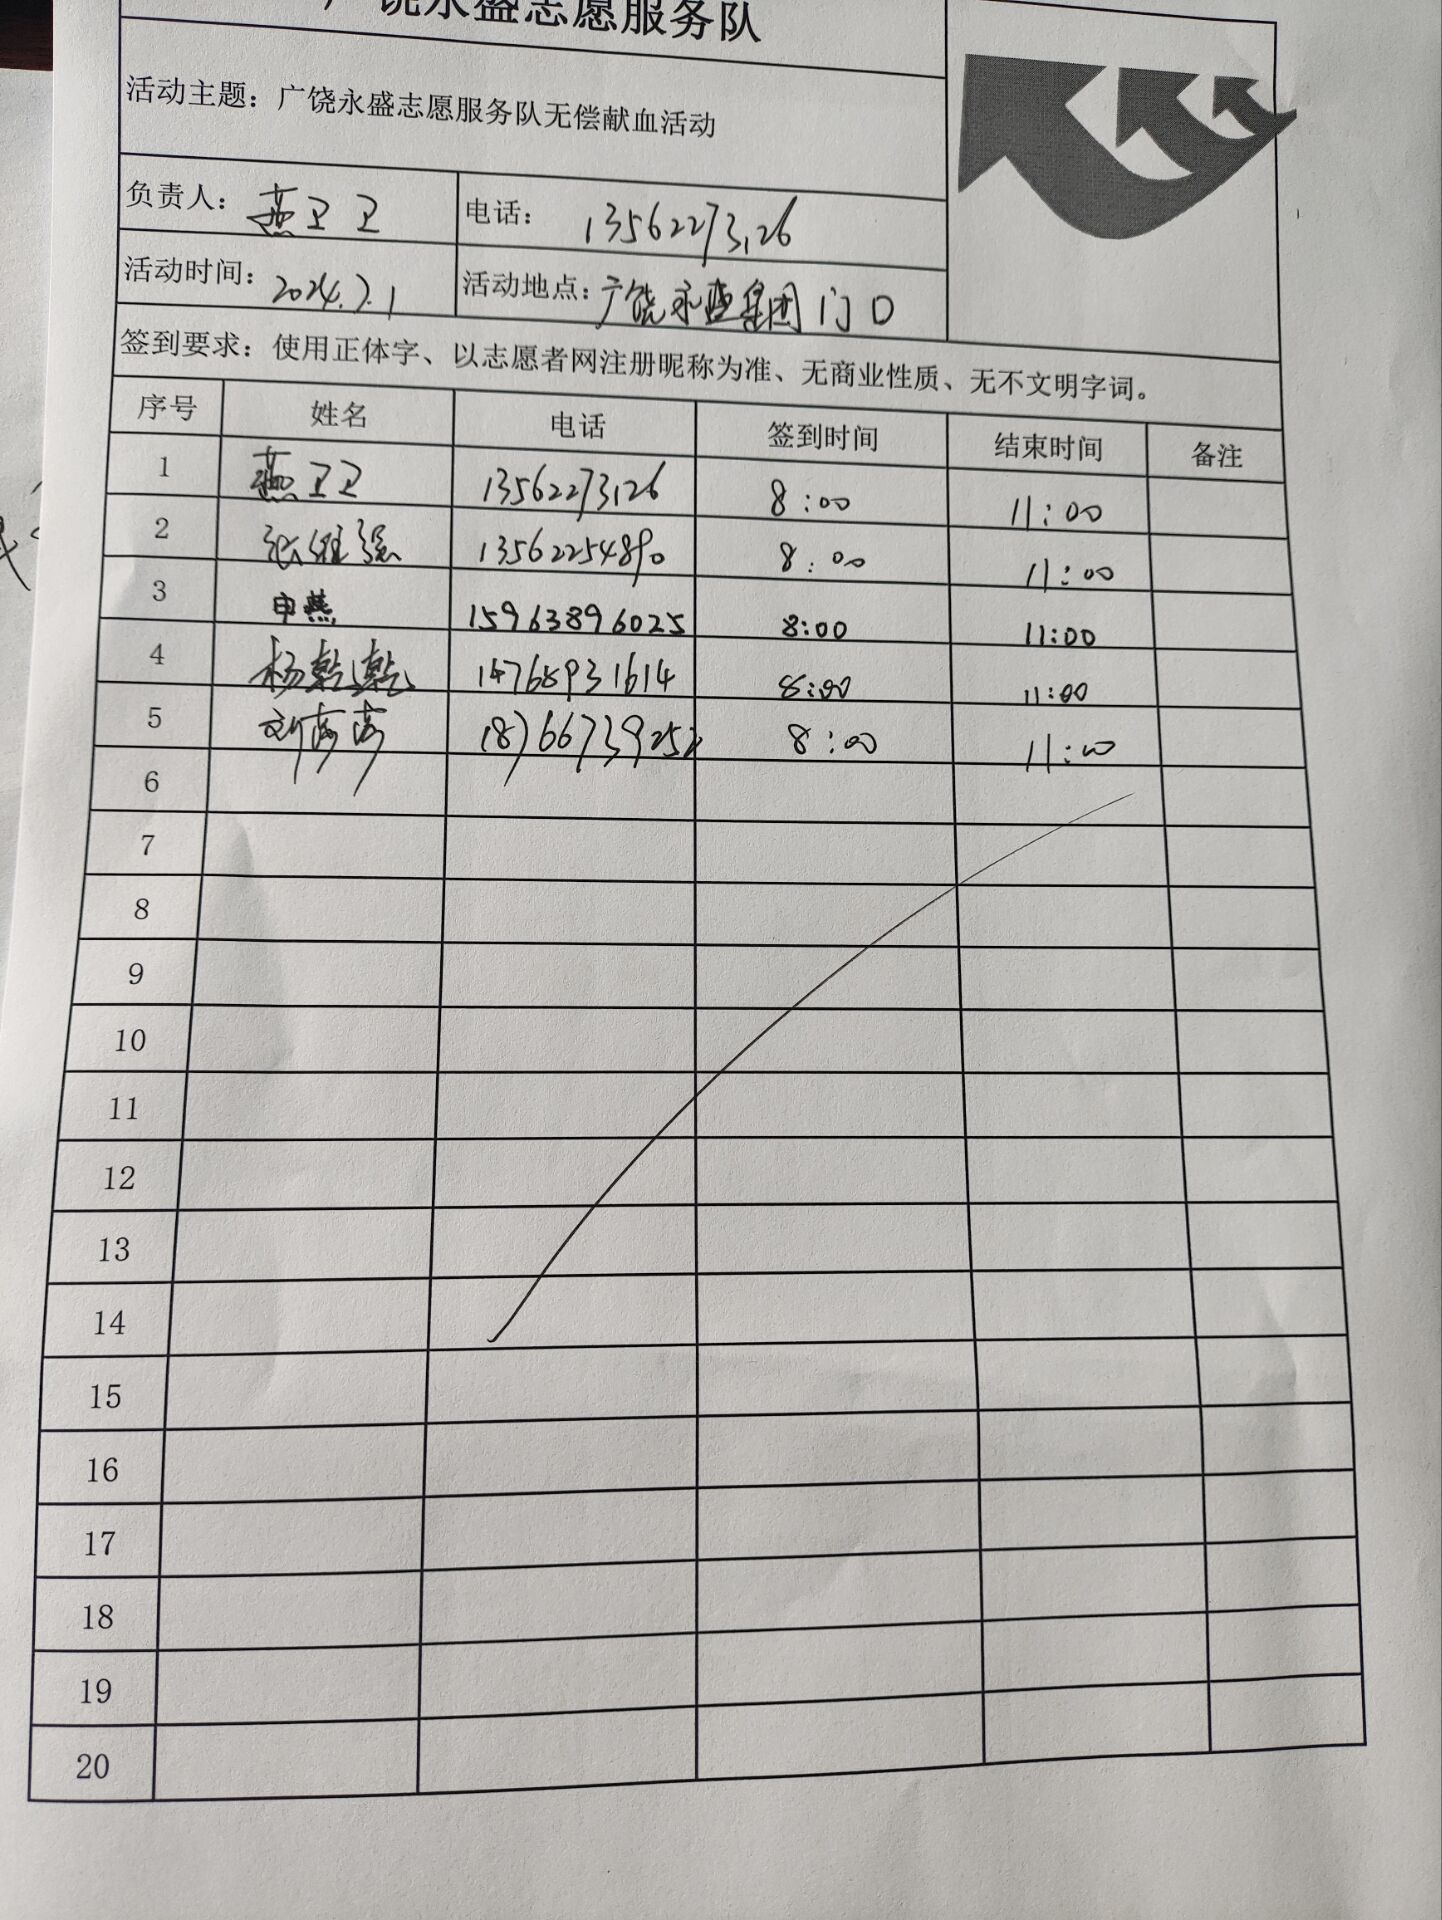 广饶永盛志愿服务队
活动主题：广饶永盛志愿服务队无偿献血活动
负责人：燕卫卫 电话：13562273126
活动时间：2024.7.1 活动地点：广饶永盛集团门口
签到要求：使用正体字、以志愿者网注册昵称为准、无商业性质、无不文明字词。
序号 姓名 电话 签到时间 结束时间 备注
1 燕卫卫 13562273126 8:00 11:00
2 张维强 13562254890 8:00 11:00
3 申燕 15963896025 8:00 11:00
4 杨乾乾 14768931614 8:00 11:00
5 刘 8:00 11:00
6
7
8
9
10
11
12
13
14
15
16
17
18
19
20